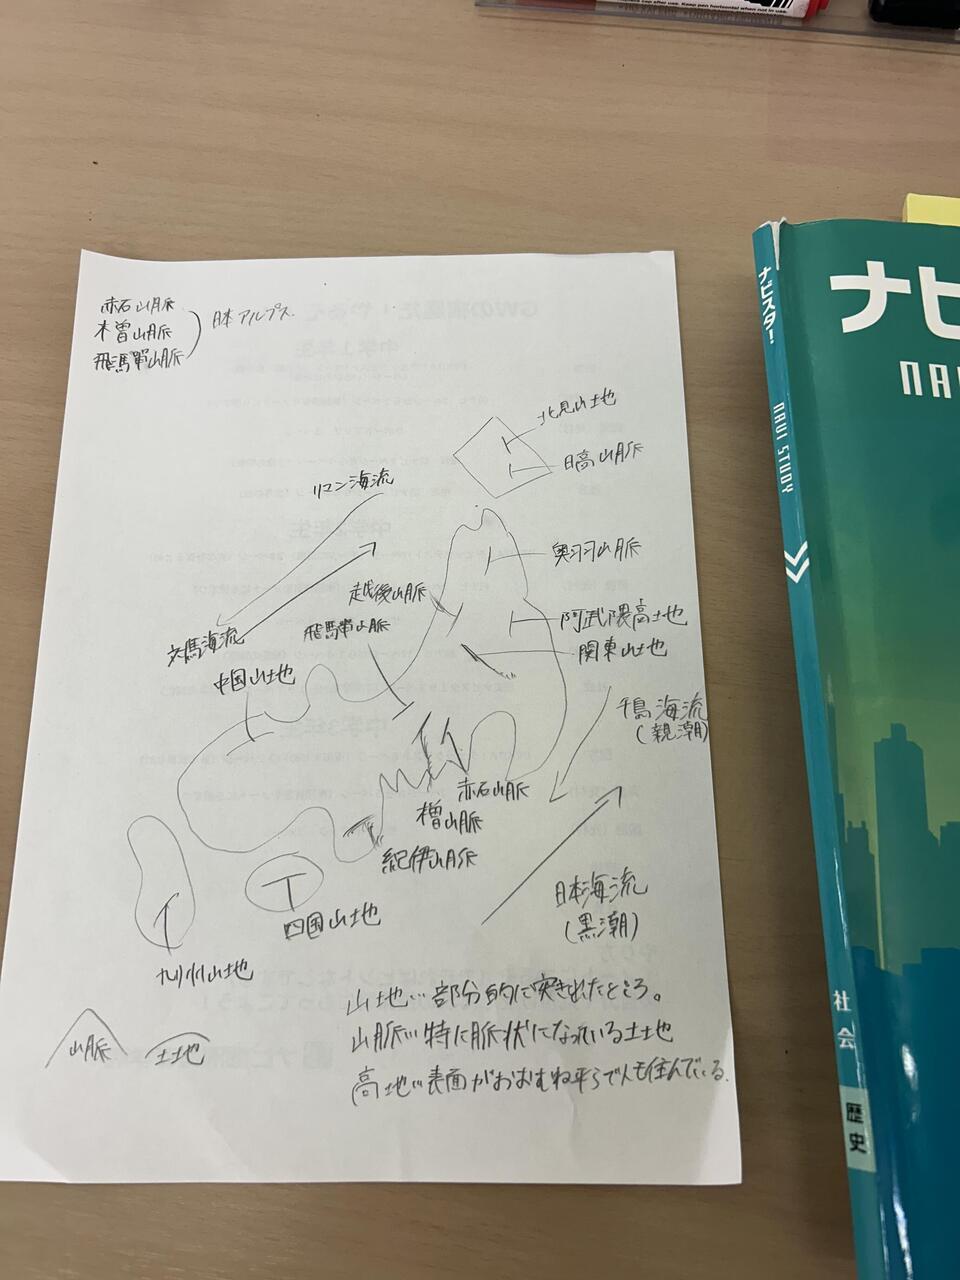 赤石山脈
木曽山脈
飛騨山脈
日本アルプス
北見山地
日高山脈
リマン海流
奥羽山脈
越後山脈
飛騨山脈
阿武隈高地
関東山地
対馬海流
中国山地
千島海流
(親潮)
赤石山脈
木曽山脈
紀伊山脈
日本海流
(黒潮)
四国山地
九州山地
山地…部分的に突き出たところ。
山脈…特に脈状になっている土地
高地…表面がおおむね平らで人も住んでいる。
山脈
土地
ナビスタ!
NAVI STUDY
社会
歴史
ナビ
NAV